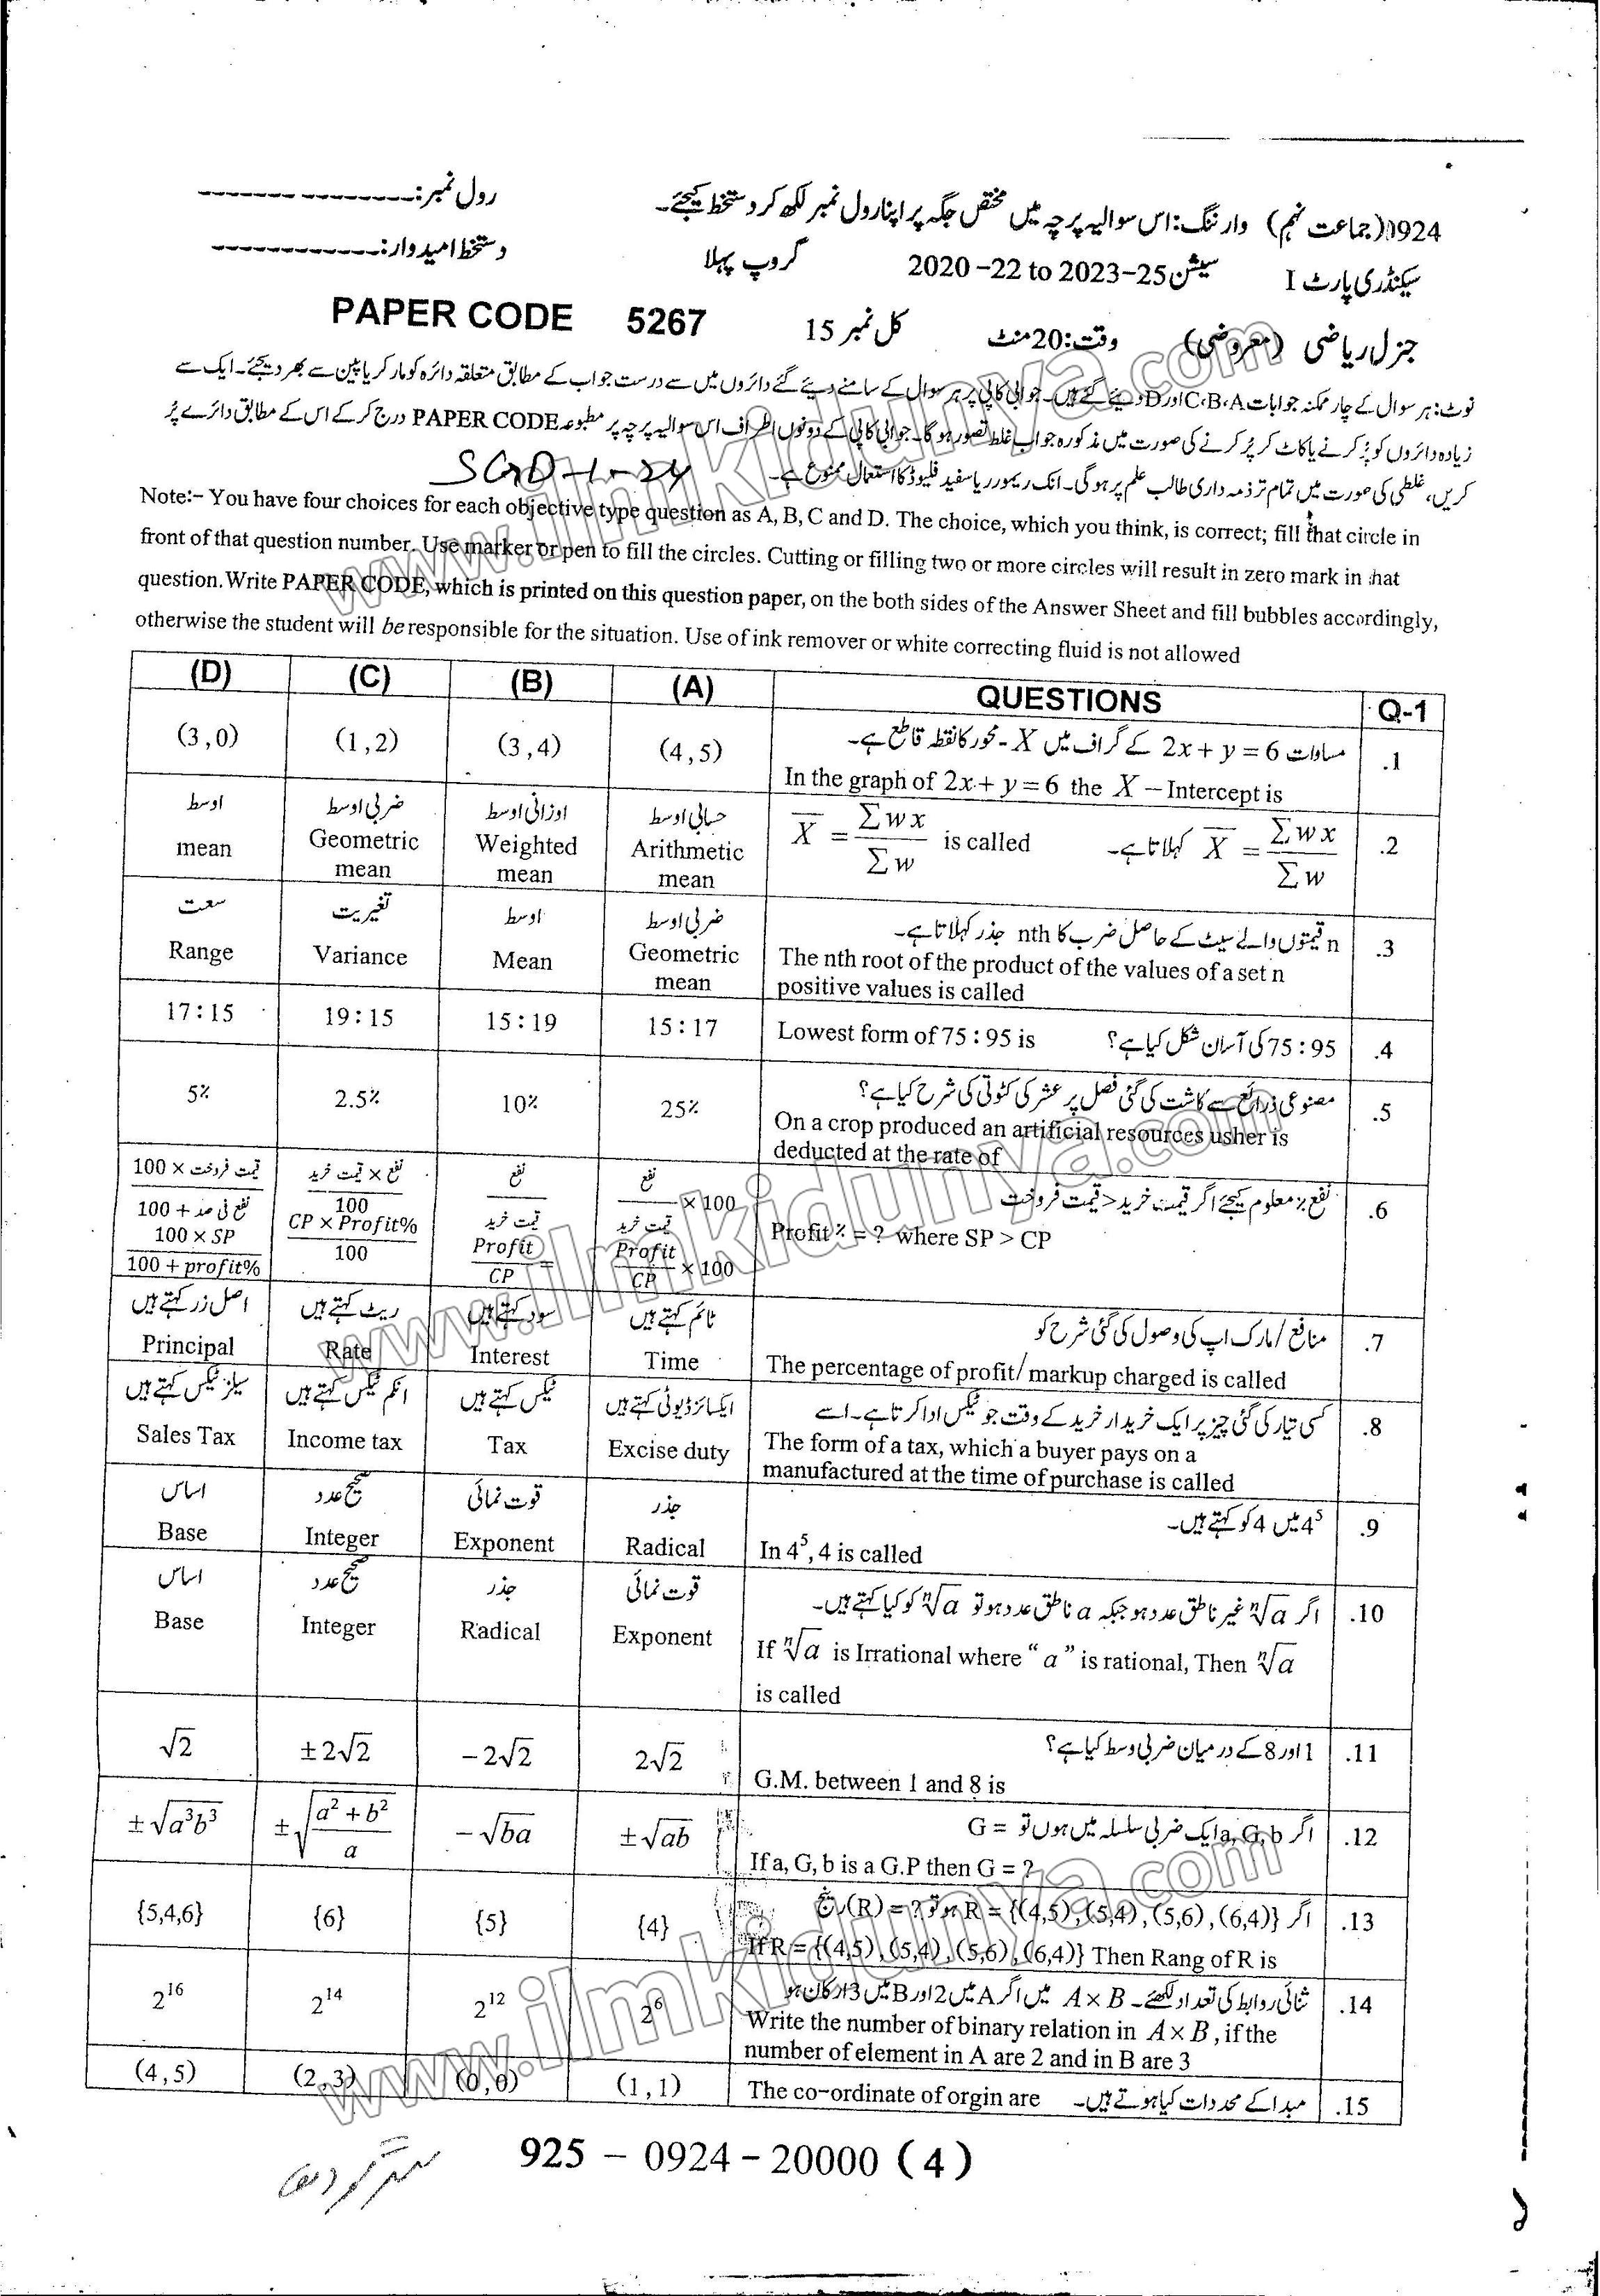 0924(جماعت نہم) وارننگ: اس سوالیہ پرچہ میں مختص جگہ پر اپنا رول نمبر لکھ کر دستخط کیجئے۔ رول نمبر:--------------
سیکنڈری پارٹ I سیشن 2020-22 to 2023-25 گروپ پہلا دستخط امیدوار:------------
جنرل ریاضی (معروضی) وقت:20منٹ کل نمبر 15 PAPER CODE 5267
نوٹ: ہر سوال کے چار ممکنہ جوابات C،B،A اور D دیئے گئے ہیں۔ جوابی کاپی پر ہر سوال کے سامنے دیئے گئے دائروں میں سے درست جواب کے مطابق متعلقہ دائرہ کو مارکر یا پین سے بھر دیجئے۔ ایک سے
زیادہ دائروں کو پُر کرنے یا کاٹ کر پُر کرنے کی صورت میں مذکورہ جواب غلط تصور ہوگا۔ جوابی کاپی کے دونوں اطراف اس سوالیہ پرچہ پر مطبوعہ PAPER CODE درج کر کے اس کے مطابق دائرے پُر
کریں، غلطی کی صورت میں تمام تر ذمہ داری طالب علم پر ہوگی۔ انک ریمور ریا سفید فلیوڈ کا استعمال ممنوع ہے۔
SGD-1-24
Note:- You have four choices for each objective type question as A, B, C and D. The choice, which you think, is correct; fill that circle in
front of that question number. Use marker or pen to fill the circles. Cutting or filling two or more circles will result in zero mark in that
question. Write PAPER CODE, which is printed on this question paper, on the both sides of the Answer Sheet and fill bubbles accordingly,
otherwise the student will be responsible for the situation. Use of ink remover or white correcting fluid is not allowed
(D) (C) (B) (A) QUESTIONS Q-1
مساوات 2x + y = 6 کے گراف میں X - محور کا نقطہ قاطع ہے۔ .1
(3,0) (1,2) (3,4) (4,5)
In the graph of 2x + y = 6 the X – Intercept is
اوسط ضربی اوسط اوزانی اوسط حسابی اوسط
mean Geometric mean Weighted mean Arithmetic mean
X̄ = Σwx / Σw is called X̄ = Σwx / Σw کہلاتا ہے۔ .2
سعت تغیریت اوسط ضربی اوسط
Range Variance Mean Geometric mean
n قیمتوں والے سیٹ کے حاصل ضرب کا nth جذر کہلاتا ہے۔ .3
The nth root of the product of the values of a set n
positive values is called
17:15 19:15 15:19 15:17
Lowest form of 75:95 is 75:95 کی آسان شکل کیا ہے؟ .4
5% 2.5% 10% 25%
مصنوعی ذرائع سے کاشت کی گئی فصل پر عشر کی کٹوتی کی شرح کیا ہے؟ .5
On a crop produced an artificial resources usher is
deducted at the rate of
قیمت فروخت × 100 / نفع فی صد + 100 نفع × قیمت خرید / 100 نفع / قیمت خرید نفع / قیمت خرید × 100
100 × SP / 100 + profit% CP × Profit% / 100 Profit / CP = Profit / CP × 100
نفع % معلوم کیجئے اگر قیمت خرید < قیمت فروخت .6
Profit % = ? where SP > CP
اصل زر کہتے ہیں ریٹ کہتے ہیں سود کہتے ہیں ٹائم کہتے ہیں
Principal Rate Interest Time
منافع / مارک اپ کی وصول کی گئی شرح کو .7
The percentage of profit/ markup charged is called
سیلز ٹیکس کہتے ہیں انکم ٹیکس کہتے ہیں ٹیکس کہتے ہیں ایکسائز ڈیوٹی کہتے ہیں
Sales Tax Income tax Tax Excise duty
کسی تیار کی گئی چیز پر ایک خریدار خرید کے وقت جو ٹیکس ادا کرتا ہے۔ اسے .8
The form of a tax, which a buyer pays on a
manufactured at the time of purchase is called
اساس صحیح عدد قوت نمائی جذر
Base Integer Exponent Radical
4⁵ میں 4 کو کہتے ہیں۔ .9
In 4⁵, 4 is called
اساس صحیح عدد جذر قوت نمائی
Base Integer Radical Exponent
اگر ⁿ√a غیر ناطق عدد ہو جبکہ a ناطق عدد ہو تو ⁿ√a کو کیا کہتے ہیں۔ .10
If ⁿ√a is Irrational where “a” is rational, Then ⁿ√a
is called
√2 ±2√2 −2√2 2√2
1 اور 8 کے درمیان ضربی وسط کیا ہے؟ .11
G.M. between 1 and 8 is
±√(a³b³) ±√((a² + b²)/a) −√(ba) ±√(ab)
اگر a, G, b ایک ضربی سلسلہ میں ہوں تو G = .12
If a, G, b is a G.P then G = ?
{5,4,6} {6} {5} {4}
اگر R = {(4,5),(5,4),(5,6),(6,4)} ہو تو ? = (R) رینج .13
If R = {(4,5),(5,4),(5,6),(6,4)} Then Rang of R is
2¹⁶ 2¹⁴ 2¹² 2⁶
ثنائی روابط کی تعداد لکھئے۔ A × B میں اگر A میں 2 اور B میں 3 ارکان ہو .14
Write the number of binary relation in A × B, if the
number of element in A are 2 and in B are 3
(4,5) (2,3) (0,0) (1,1)
The co-ordinate of orgin are مبدا کے محددات کیا ہوتے ہیں۔ .15
925 – 0924 – 20000 (4)
www.ilmkidunya.com
www.ilmkidunya.com
www.ilmkidunya.com